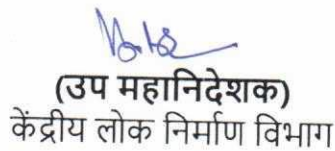 (उप महानिदेशक)
केंद्रीय लोक निर्माण विभाग